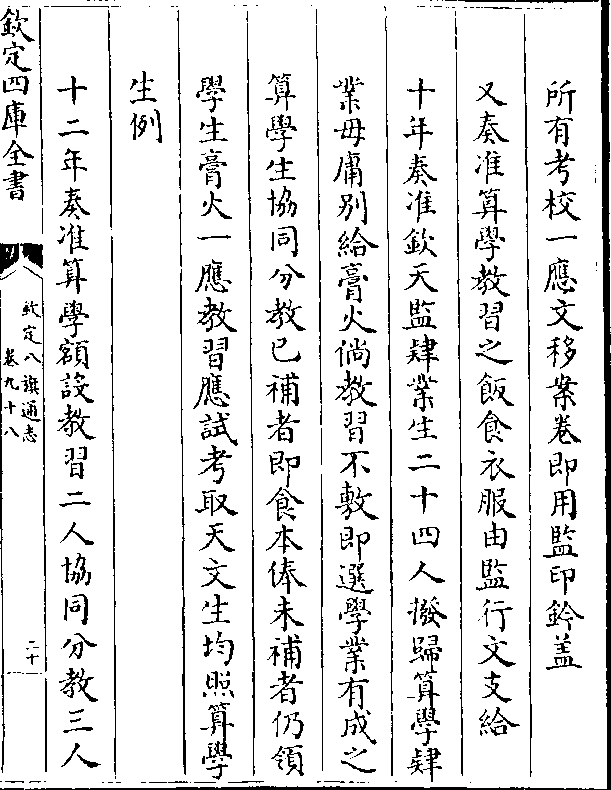 所有考校一應文移案卷即用監印鈐蓋
又奏准算學教習之飯食衣服由監行文支給
十年奏准欽天監肄業生二十四人撥歸算學肄
業毋庸别給膏火倘教習不敷即選學業有成之
算學生協同分教已補者即食本俸未補者仍領
學生膏火一應教習應試考取天文生均照算學
生例
十二年奏准算學額設教習二人協同分教三人
欽定四庫全書
欽定八旗通志
卷九十八
二十